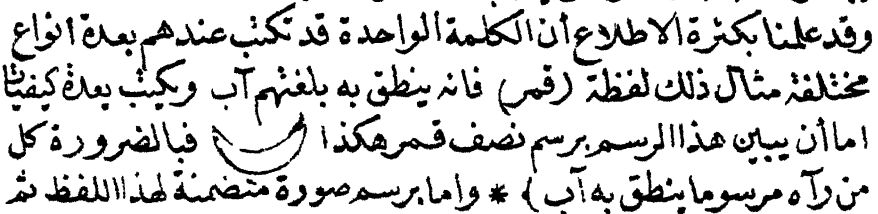 وقد علمنا بكثرة الاطلاع أن الكلمة الواحدة قد تكتب عندهم بعدة أنواع
مختلفة مثال ذلك لفظة (قمر) فانه ينطق به بلغتهم آب ويكتب بعدة كيفيات
اما أن يبين هذا الرسم برسم نصف قمر هكذا فبالضرورة كل
من رآه مرسوما ينطق به آب) * واما برسم صورة متضمنة لهذا اللفظ ثم